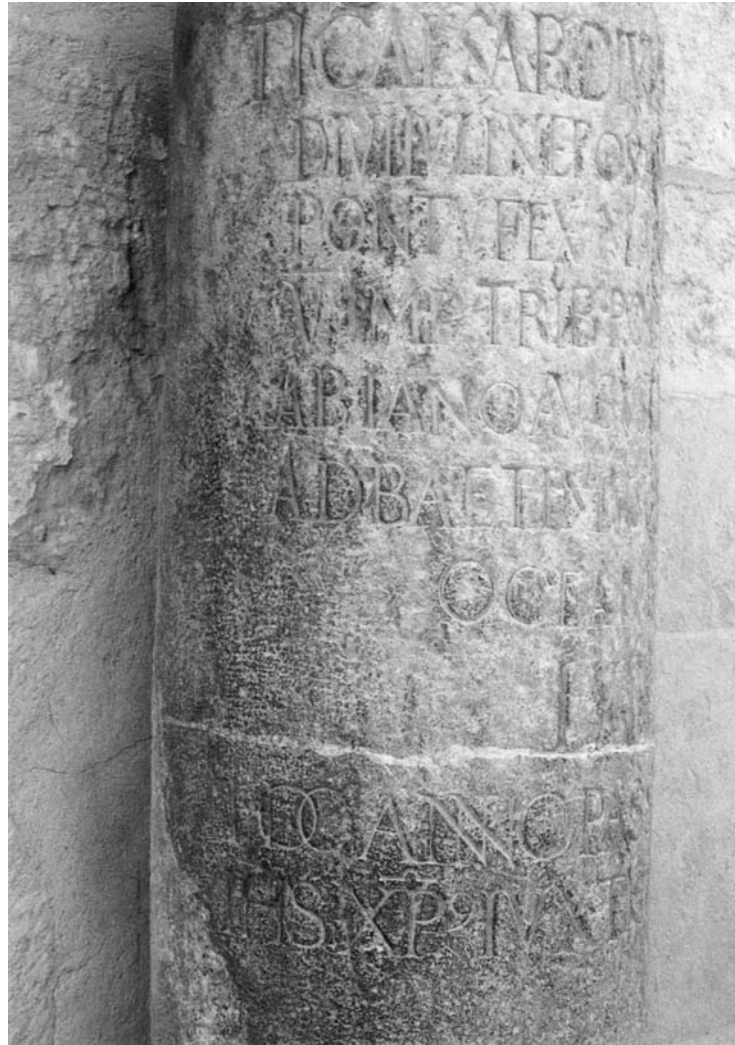 TI CAESAR DIV
DIVI IVLI NEPOS
PONTVFEX M
V IMP TRIB PO
AB IANO AVGV
AD BAETE
OCEA
DC ANNO
IHS XPꝰ